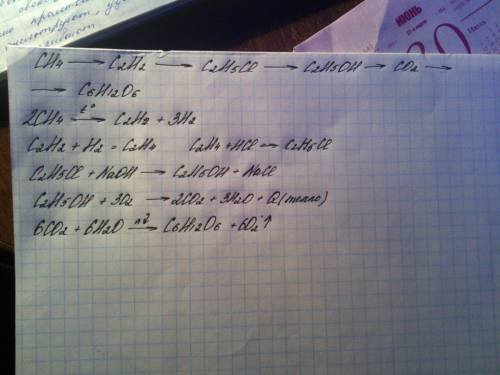 CH4 → C2H2 → C2H5Cl → C2H5OH → CO2 →
→ C6H12O6
2CH4 t°→ C2H2 + 3H2
C2H2 + H2 = C2H4 C2H4 + HCl → C2H5Cl
C2H5Cl + NaOH → C2H5OH + NaCl
C2H5OH + 3O2 → 2CO2 + 3H2O + Q (тепло)
6CO2 + 6H2O → C6H12O6 + 6O2↑
ИЮНЬ